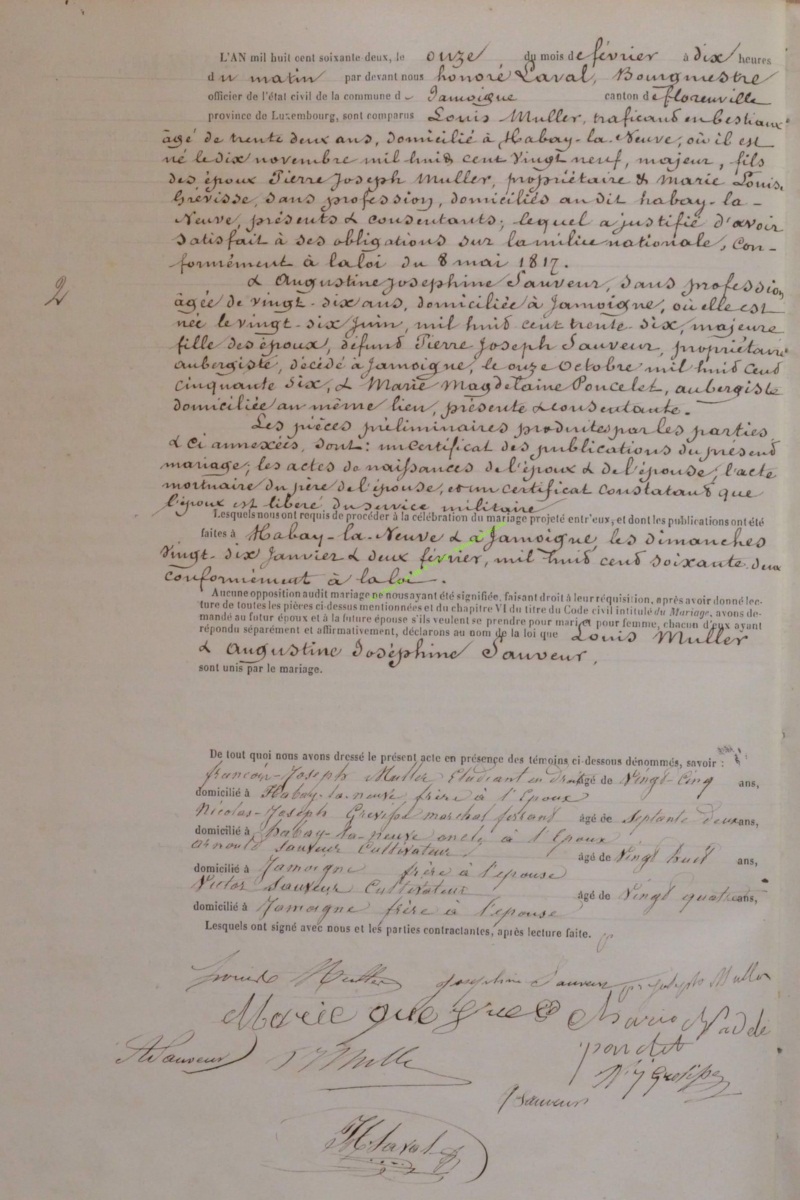 L'AN mil huit cent soixante deux, le onze du mois de février à dix heures
du matin par devant nous honoré Laval, Bourgmestre
officier de l'état civil de la commune d Jamoigne canton de florenville
province de Luxembourg, sont comparus Louis Muller, traficand en bestiaux
âgé de trente deux ans, domicilié à Habay-la-Neuve, où il est
né le dix novembre mil huid cent vingt neuf, majeur, fils
des époux Pierre Joseph Muller, propriétaire & Marie Louis.
Grévisse, sans profession, domiciliés au dit habay-la-
Neuve, présents & consentants; lequel a justifié d'avoir
satisfait à ses obligations sur la milice nationale, Con-
formément à la loi du 8 mai 1817.
2
& Augustine Joséphine Sauveur, sans profession
âgée de vingt-six ans, domiciliée à Jamoigne, où elle est
née le vingt-six Juin, mil huid cent trente six, majeure
fille des époux, défund Pierre Joseph Sauveur, propriétaire
aubergiste, décédé à Jamoigne, le onze Octobre mil huid cend
cinquante six, & Marie Magdelaine Poncelet, aubergiste
domiciliée au même lieu, présente & consentante.
Les pièces préliminaires produites par les parties
& ci annexées, sont: un certificat des publications du présend
mariage; les actes de naissances de l'époux & de l'épouse; l'acte
mortuaire du père de l'épouse, et un certificat constatant que
l'époux est libéré du service militaire
Lesquels nous ont requis de procéder à la célébration du mariage projeté entr'eux, et dont les publications ont été
faites à Habay-la-Neuve & à Jamoigne les dimanches
vingt-six Janvier & deux février, mil huid cend soixante deux
conformément à la loi.
Aucune opposition audit mariage ne nous ayant été signifiée, faisant droit à leur réquisition, après avoir donné lec-
ture de toutes les pièces ci-dessus mentionnées et du chapitre VI du titre du Code civil intitulé du Mariage, avons de-
mandé au futur époux et à la future épouse s'ils veulent se prendre pour mari et pour femme, chacun d'eux ayant
répondu séparément et affirmativement, déclarons au nom de la loi que Louis Muller
& Augustine Joséphine Sauveur,
sont unis par le mariage.
De tout quoi nous avons dressé le présent acte en présence des témoins ci-dessous dénommés, savoir :
francois-Joseph Muller Etudiant en droit âgé de Vingt-Cinq ans,
domicilié à Habay-la-neuve frère à l'Epoux
Nicolas-Joseph marchal ferrand âgé de Septante deux ans,
domicilié à habay-la-neuve oncle à l'Epoux
Arnould Sauveur Cultivateur âgé de Vingt huit ans,
domicilié à Jamoigne frère à l'épouse
Victor Sauveur Cultivateur âgé de Vingt quatre ans,
domicilié à Jamoigne frère à l'épouse
Lesquels ont signé avec nous et les parties contractantes, après lecture faite.
Louis Muller Josephine Sauveur Joseph Muller
Marie
A Sauveur F J Muller N J
Sauveur
H Laval